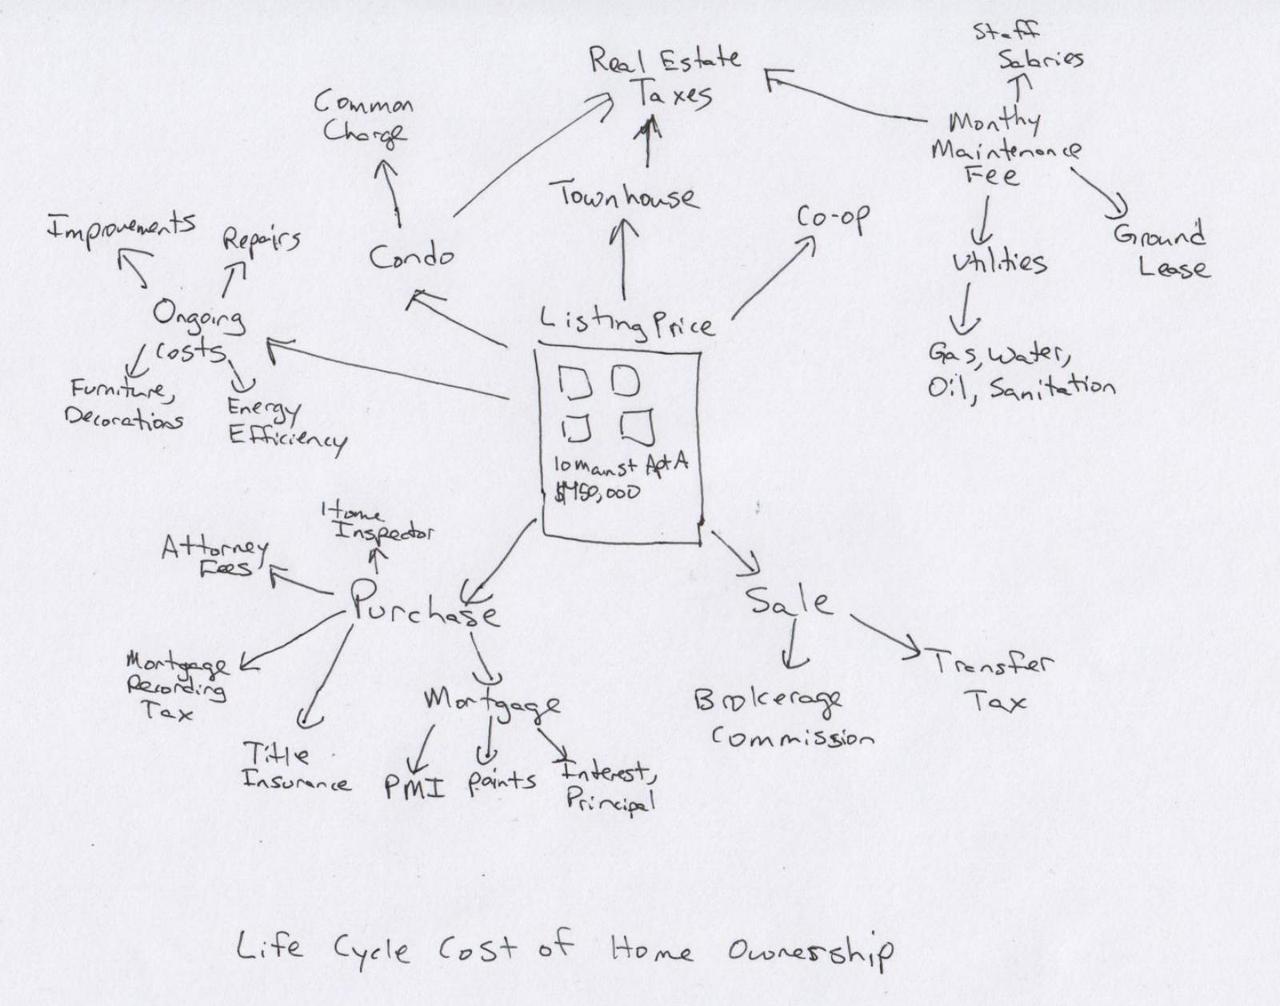 Staff
Salaries
Real Estate
Taxes
Common
Charge
Monthy
Maintenance
Fee
Townhouse
Co-op
Improvements
Repairs
Condo
Ground
Lease
Utilities
Ongoing
Costs
Listing Price
Gas, Water,
Oil, Sanitation
Furniture,
Decorations
Energy
Efficiency
10 main st Apt A
$450,000
Home
Inspector
Attorney
Fees
Purchase
Sale
Mortgage
Recording
Tax
Transfer
Tax
Mortgage
Brokerage
Commission
Title
Insurance
PMI
Points
Interest,
Principal
Life Cycle Cost of Home Ownership